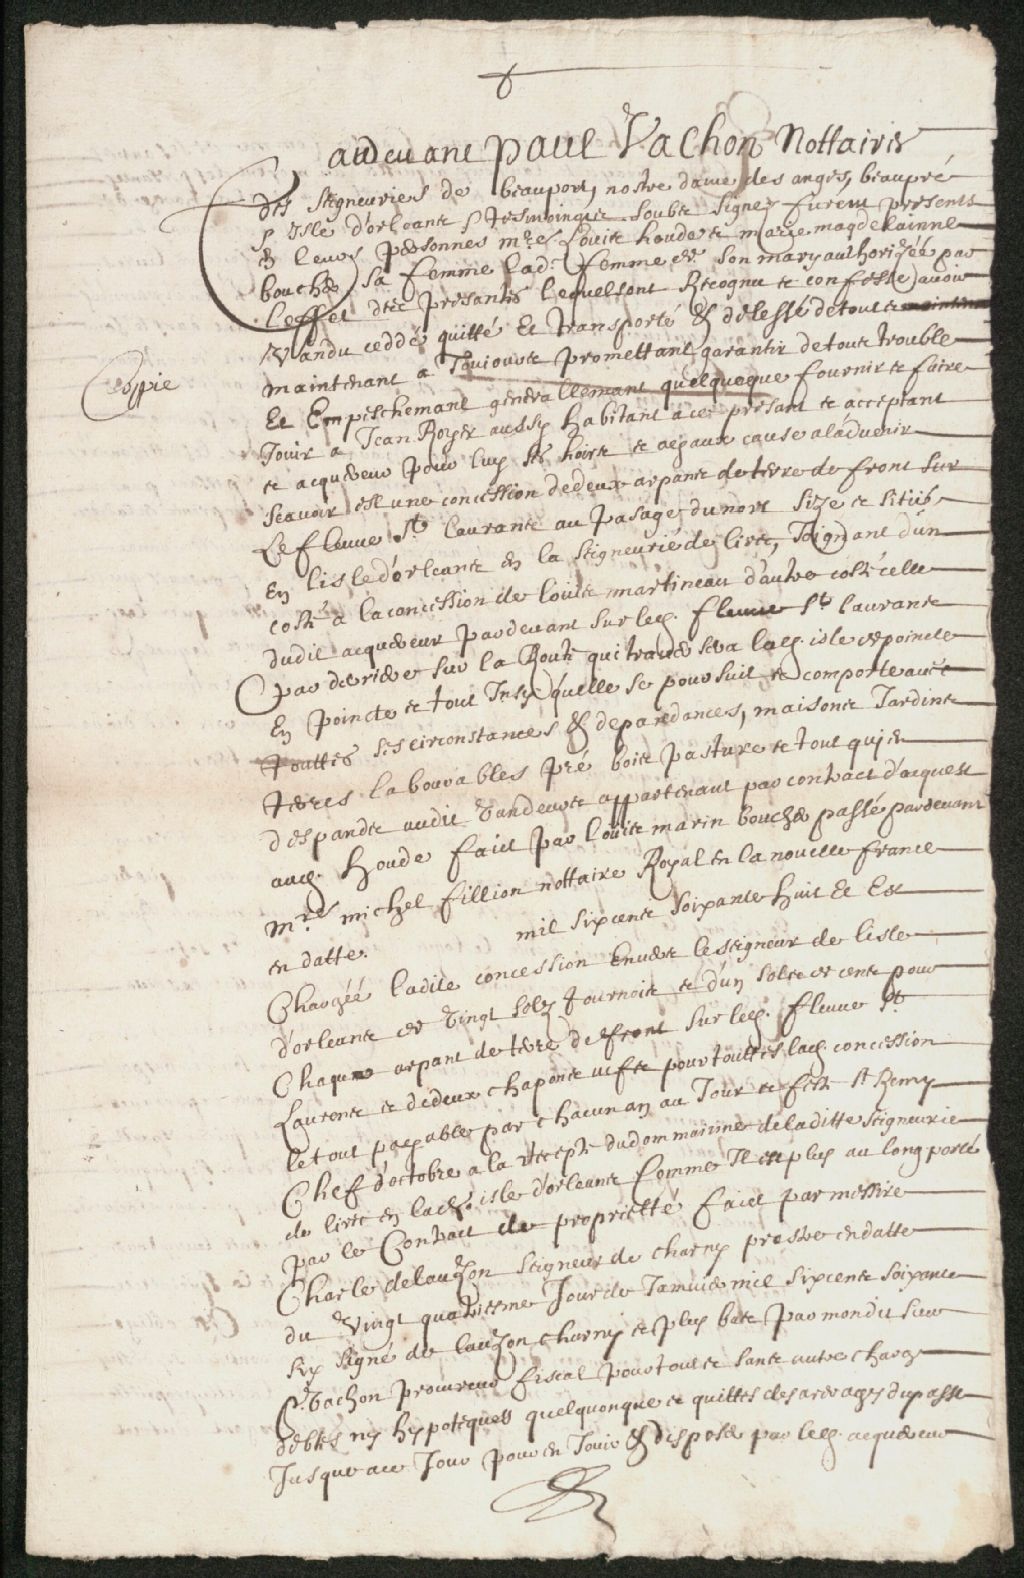 Pardevant paul Vachon Nottaire
des seigneuries de beauport, nostre dame des anges, beaupré
et isle d'orleans et tesmoingts soubs signez furent presents
en leurs personnes mrs Louis houde et marie magdelainne
boucher sa femme lad. femme de son mary authorizée par
l'effet des presantes lequels ont Recognu et confessé avoir
Vandu ceddé quitté Et transporté et delessé de tout
maintenant a Toujours promettant garantir de tous trouble
Coppie
Et Empischemant generallemant quelquoque fournir et faire
Jouir a Jean Royer aussy habitant a ce presant et acceptant
et acquereur pour luy ses hoirs et ayans cause a l'advenir
scavoir est une concession de deux arpants de terre de front sur
Le fleuve St laurants au pasage du nort size et situés
En lisle d'orleans en la seigneurié de lirec, Joignant d'un
costé a la concession de louis martineau d'autre costé celle
dudit acquereur par devant sur led. fleuve St laurants
par deriere sur la Route qui traversera lad. isle de poincte
En poincte et tout Insy quelle se poursuit et comporte avec
touttes ses circonstances et dependances, maisons Jardins
terres labourables pré bois pasture et tout qui en
despands audit Vandeurs appartenant par contract d'acquest
aud. houde faict par louis marin boucher passé pardevant
mre michel fillion nottaire Royal en la nouvelle france
en datte. mil sixcents soixante huit Et Est
Chargéé ladite concession Envers le seigneur de lisle
d'orleans de Vingt solz tournois et d'un sols de cens pour
Chaque arpant de terre de front sur led. fleuve St
Laurens et de deux chapons vifs pour touttes lad. concession
le tout payable par chacun an au Jour et feste St Remy
Chef d'octobre a la recepte du dommaine de laditte seigneurie
de lirec en lad. isle d'orleans Comme Il est plus au long porté
par le Contract de proprietté faict par messire
Charle de lauzon seigneur de charny prestre en datte
du Vingt quatriesme Jour de Janvier mil sixcents soixante
six signé de lauzon charny et plus bas par mondit sieur
P. Vachon procureur fiscal pour toutes sans autre charge
debtes ny hypoteques quelquonque et quittes des arerages du passé
Jusque a ce Jour pour en Jouir et disposer par led. acquereur